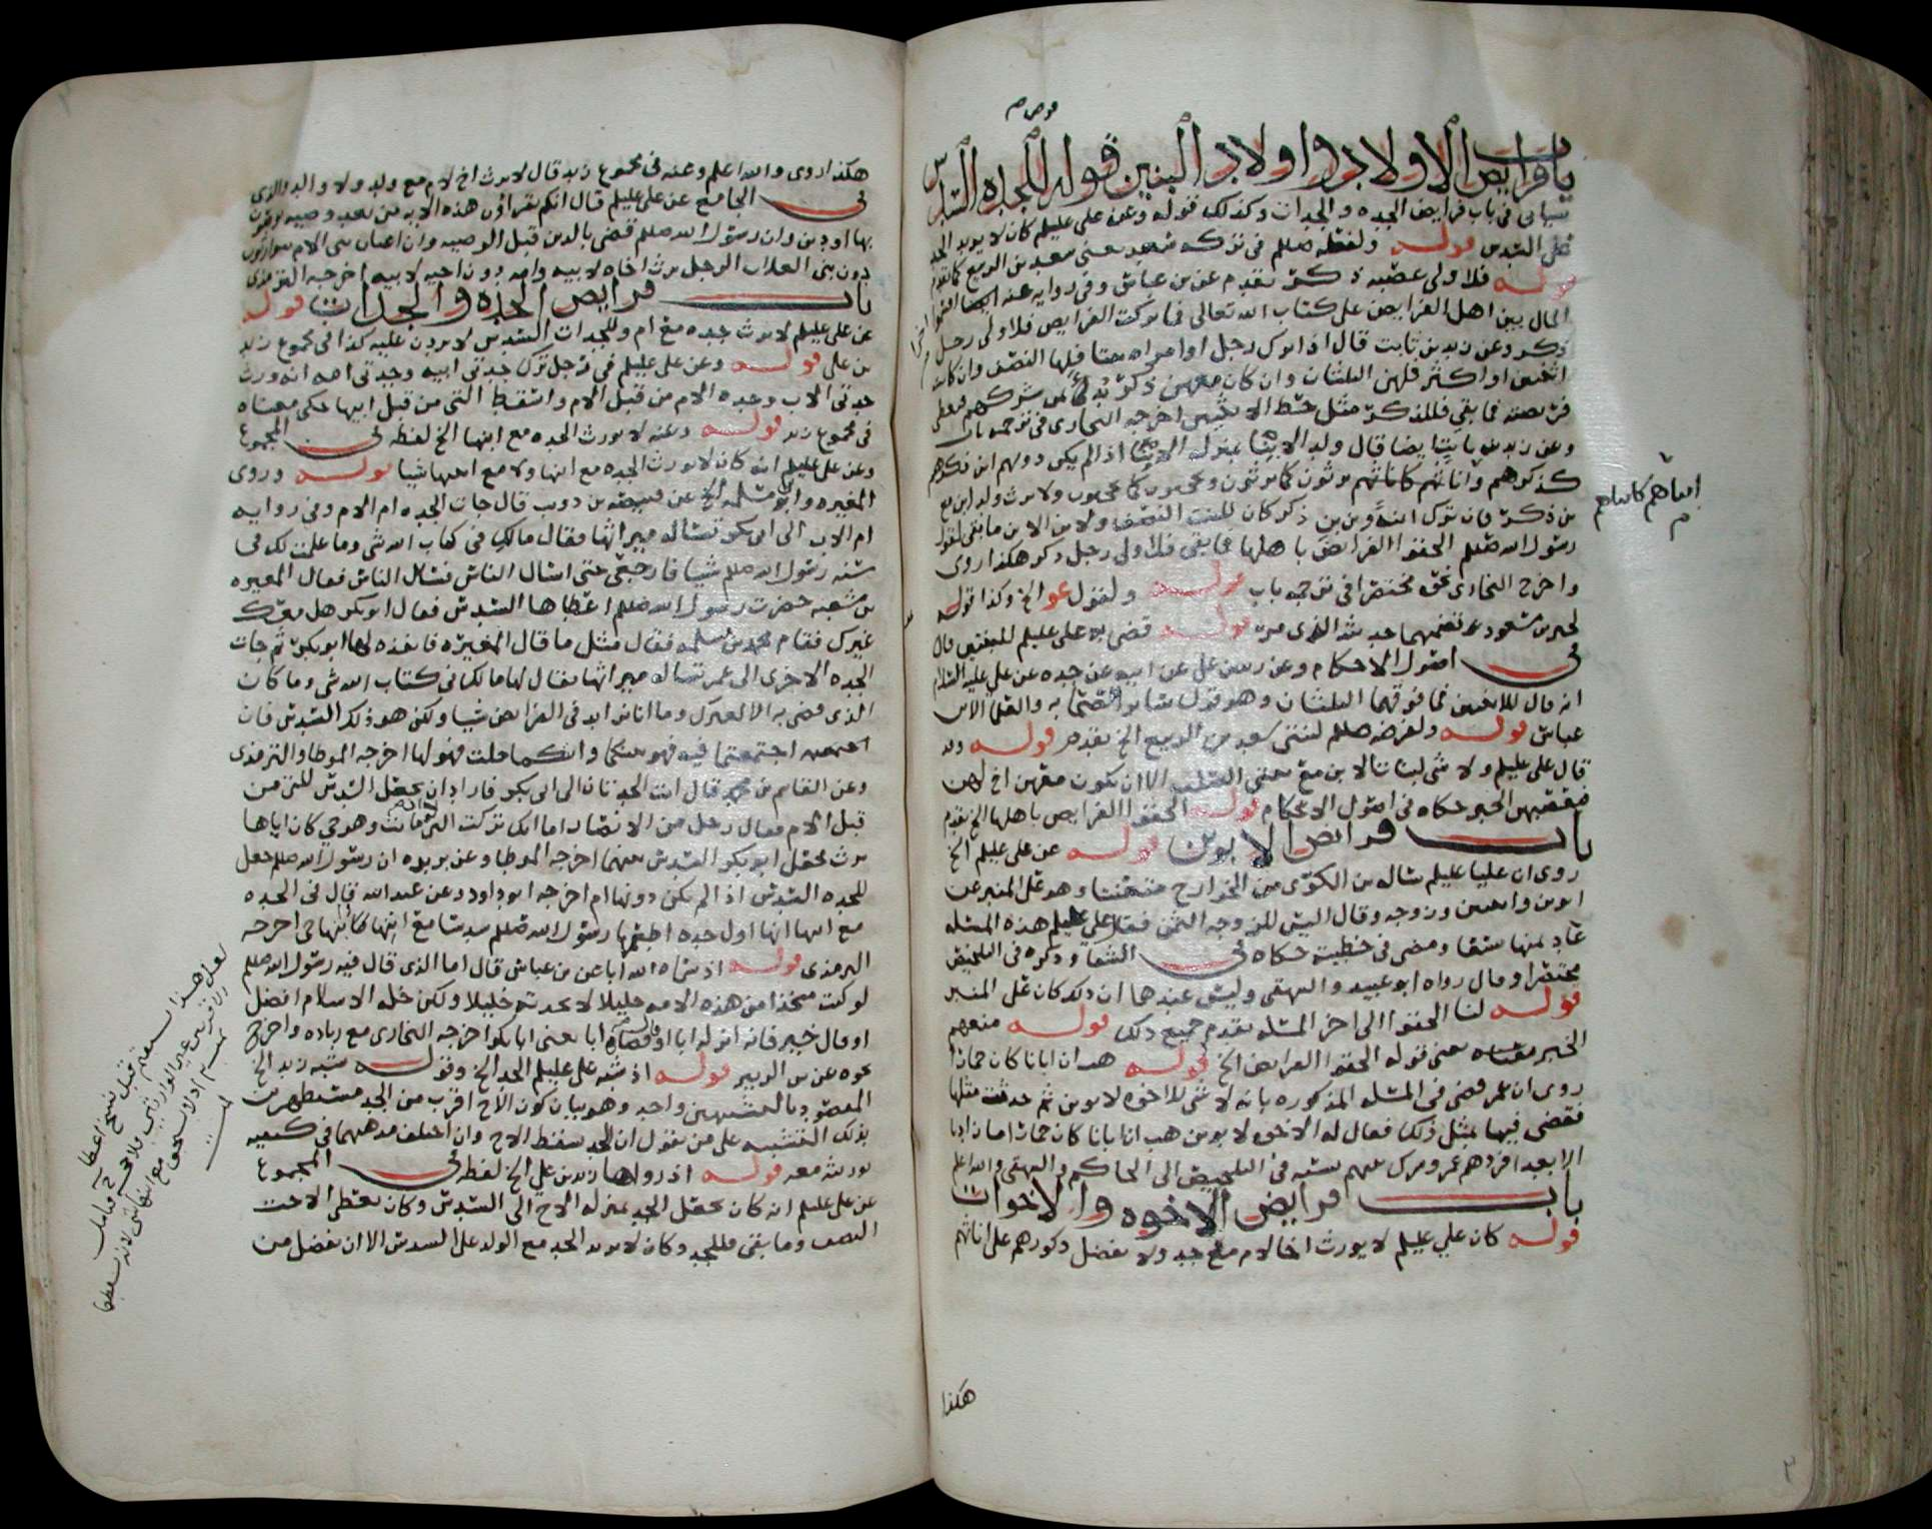 باب فرايض الاولاد واولاد البنين قوله للجده السدس
سياتى فى باب فرايض الجده والجدات وكذلك قوله وعن على عليلم كان لا يزيد الجد
على السدس قوله ولفظه صللم فى تركه سعد يعنى سعد بن الربيع كما تقدم
قوله فلاولى عصبه ذكر تقدم عن بن عباس وفى روايه عنه ايضا اقسموا
المال بين اهل الفرايض على كتاب الله تعالى فما تركت الفرايض فلاولى رجل
ذكر وعن زيد بن ثابت قال اذا ترك رجل او امراه بنتا فلها النصف وان كانتا
اثنتين او اكثر فلهن الثلثان وان كان معهن ذكر بدئ بمن شركهم فيعطى
فريضته فما بقى فللذكر مثل حظ الانثيين اخرجه البخارى فى ترجمه باب
وعن زيد بن ثابت ايضا قال ولد الابنا بمنزله الابنا اذا لم يكن دونهم ابن ذكرهم
كذكرهم وانثاهم كانثاهم يرثون كما يرثون ويحجبون كما يحجبون ولا يرث ولد ابن مع
بن ذكر فان ترك ابنة وبن بن ذكر كان للبنت النصف ولابن الابن ما بقى لقول
رسول الله صللم الحقوا الفرايض باهلها فما بقى فلاولى رجل ذكر هكذا روى
واخرج البخارى نحوه مختصرا فى ترجمه باب قوله ولقول الخ وكذا قوله
لخبر بن مسعود قوله قضى به على عليلم للبنتين قال
فى اصول الاحكام وعن زيد بن على عن ابيه عن جده عن على عليه السلام
انه قال للابنتين فما فوقهما الثلثان وهو قول سائر الصحابه والعلما الا بن
عباس قوله ولفرضه صللم لبنتى سعد بن الربيع الخ تقدم قوله
قال على عليلم ولا شى لبنات الابن مع بنتى الصلب الا ان يكون معهن اخ لهن
فيعصبهن الخبر حكاه فى اصول الاحكام قوله الحقوا الفرايض باهلها الخ تقدم
باب فرايض الابوين قوله عن على عليلم الخ
روى ان عليا عليلم ساله بن الكوى من الخوارج متعنتا وهو على المنبر عن
ابوين وابنتين وزوجه وقال اليس للزوجه الثمن فقال على عليلم هذه المسئله
عاد ثمنها تسعا ومضى فى خطبته حكاه فى الشفا وذكره فى التلخيص
مختصرا وقال رواه ابو عبيد والبيهقى وليس عندهما ان ذلك كان على المنبر
قوله لنا الحقوا الى اخر المسئله تقدم جميع ذلك قوله
الخبر يعنى قوله الحقوا الفرايض الخ قوله هب ان ابانا كان حمارا
روى ان عمر قضى فى المسئله المذكوره بانه لا شى للاخوه لابوين ثم حدثت مثلها
فقضى فيها بمثل ذلك فقال له الاخوه لابوين هب ان ابانا كان حمارا
الا بعدا افردهم عمر وشرك بينهم نسبه فى التلخيص الى الحاكم والبيهقى والله اعلم
باب فرايض الاخوه والاخوات
قوله كان على عليلم لا يورث اخا لام مع جد ولا يفضل ذكورهم على اناثهم
هكذا
هكذا روى والله اعلم وعنه فى مجموع زيد قال لا يرث اخ لام مع ولد ولا والد والذى
فى الجامع عن على عليلم قال انكم تقراون هذه الايه من بعد وصيه توصون
بها او دين وان رسول الله صللم قضى بالدين قبل الوصيه وان اعيان بنى الام يتوارثون
دون بنى العلات الرجل يرث اخاه لابيه وامه دون اخيه لابيه اخرجه الترمذى
باب فرايض الجده والجدات قوله
عن على عليلم لا يرث جده مع ام وللجدات السدس لا يزدن عليه كذا فى مجموع زيد
بن على قوله وعن على عليلم فى رجل ترك جدتى ابيه وجدتى امه انه ورث
جدتى الاب وجده الام من قبل الام واسقط التى من قبل ابيها حكى معناه
فى مجموع زيد قوله وعنه لا يورث الجده مع ابنها الخ لفظه فى المجموع
وعن على عليلم انه كان لا يورث الجده مع ابنها ولا مع ابنتها شيا قوله وروى
المغيره وابن مسلمه الخ عن قبيصه بن ذويب قال جات الجده ام الام وفى روايه
ام الاب الى ابى بكر تساله ميراثها فقال مالك فى كتاب الله شى وما علمت لك فى
سنه رسول الله صللم شيا فارجعى حتى اسال الناس فسال الناس فقال المغيره
بن شعبه حضرت رسول الله صللم اعطاها السدس فقال ابو بكر هل معك
غيرك فقام محمد بن مسلمه فقال مثل ما قال المغيره فانفذه لها ابو بكر ثم جات
الجده الاخرى الى عمر تساله ميراثها فقال لها مالك فى كتاب الله شى وما كان
الذى قضى به الا لغيرك وما انا بزايد فى الفرايض شيا ولكن هو ذلك السدس فان
اجتمعتما فيه فهو بينكما وايتكما خلت فهو لها اخرجه الموطا والترمذى
وعن القاسم بن محمد قال اتت الجدتان الى ابى بكر فاراد ان يجعل السدس للتى من
قبل الام فقال رجل من الانصار اما انك تركت التى لو ماتت وهو حى كان اياها
يرث فجعل ابو بكر السدس بينهما اخرجه الموطا وعن بريده ان رسول الله صللم جعل
للجده السدس اذا لم يكن دونها ام اخرجه ابو داود وعن عبد الله قال فى الجده
مع ابنها انها اول جده اطعمها رسول الله صللم سدسا مع ابنها وابنها حى اخرجه
الترمذى قوله اذ سماه الله ابا عن بن عباس قال اما الذى قال فيه رسول الله صللم
لو كنت متخذا من هذه الامه خليلا لاتخذته خليلا ولكن خله الاسلام افضل
او قال خير فانه انزله ابا او قضاه ابا يعنى ابا بكر اخرجه البخارى مع زياده واخرج
نحوه عن بن الزبير قوله اذ شبه على عليلم الجد الخ وقوله شبه زيد الخ
المقصود بالتشبيهين واحد وهو بيان كون الاخ اقرب من الجد
بذلك التشبيه على من يقول ان الجد يسقط الاخ وان اختلف مذهبهما فى كيفيه
توريثه معه قوله اذ رواها زيد بن على الخ لفظه فى المجموع
عن على عليلم انه كان يجعل الجد بمنزله الاخ الى السدس وكان يعطى الاخت
النصف وما بقى فللجد وكان لا يزيد الجد مع الولد على السدس الا ان يفضل من